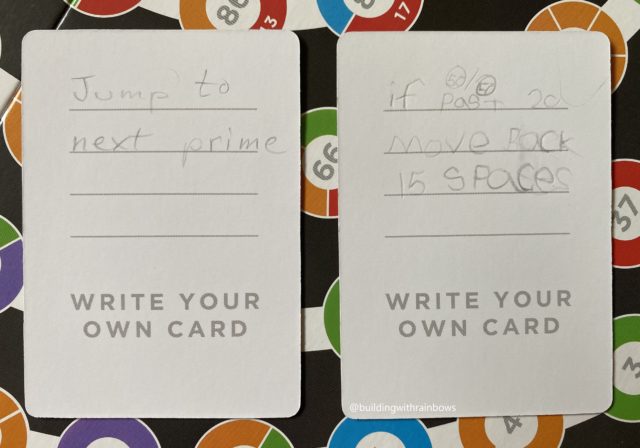 Jump to
next prime
WRITE YOUR
OWN CARD
if Past
Move Back
15 Spaces
WRITE YOUR
OWN CARD
@buildingwithrainbows
86
17
66
37
3
4